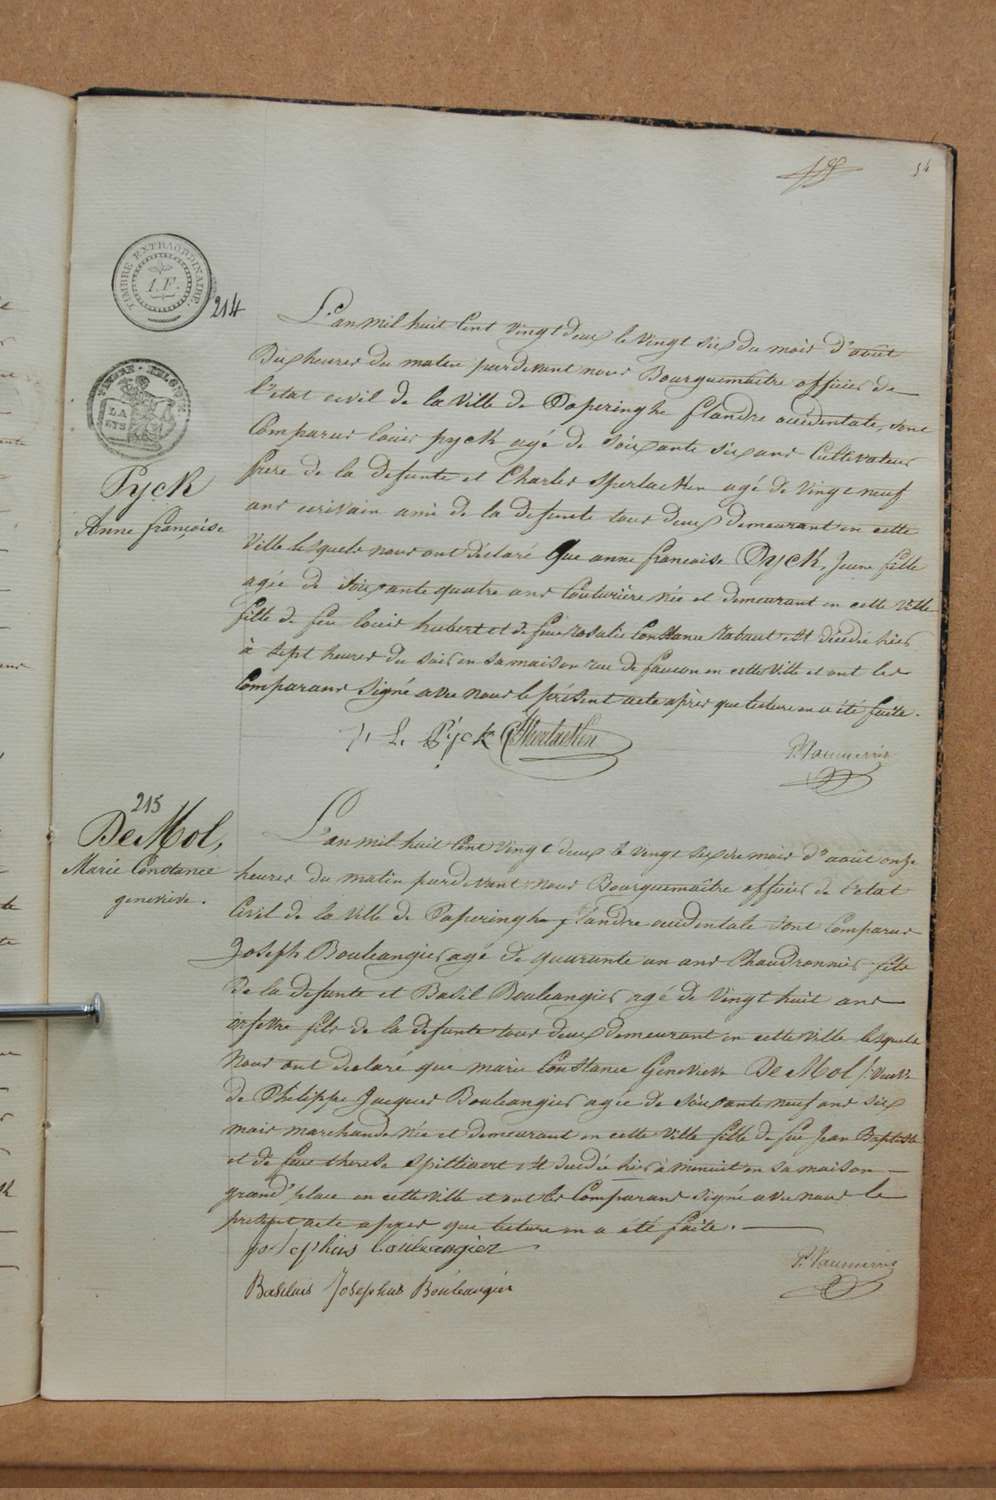 54
TIMBRE EXTRAORDINAIRE.
1.F.
214
L'an mil huit Cent vingt deux le vingt six du mois d'août
Dix heures du matin pardevant nous Bourguemaître officier de
l'etat civil de la Ville de Poperinghe flandre occidentale, sont
Comparus louis pyck agé de soixante six ans Cultivateur
frere de la defunte et Charles Sperlaeken agé de vingt neuf
ans ecrivain ami de la defunte tous deux demeurant en cette
Ville lesquels nous ont déclaré Que anne françoise Pyck, Jeune fille
agée de soixante quatre ans Couturière née et demeurant en cette Ville
fille de feu louis hubert et de feue rosalie Constance Rabaut est décédée hier
à sept heures du soir en sa maison rue de faucon en cette Ville et ont les
Comparans signé avec nous le présent acte après que lecture en a été faite.
Pyck
Anne françoise
L. Pyck CSperlaeken
215
De Mol,
Marie Constance
genevieve.
L'an mil huit Cent vingt deux le vingt six du mois d'août onze
heures du matin pardevant nous Bourguemaître officier de l'etat
Civil de la Ville de Poperinghe flandre occidentale sont Comparus
Joseph Bouleangier agé de quarante un ans Chaudronnier fils
de la defunte et Basil Bouleangier agé de vingt huit ans
orfevre fils de la defunte tous deux demeurant en cette Ville lesquels
Nous ont declaré que marie Constance Genevieve De Mol, Veuve
de Philippe Jacques Bouleangier agée de soixante neuf ans six
mois marchande née et demeurant en cette Ville fille de feu Jean Baptiste
et de feue therese Spillieart est decedée hier à minuit en sa maison
grand' place en cette Ville et ont les Comparans signé avec nous le
present acte apres que lecture en a été faite.
Josephus bouleangier
Basilius Josephus Bouleangier